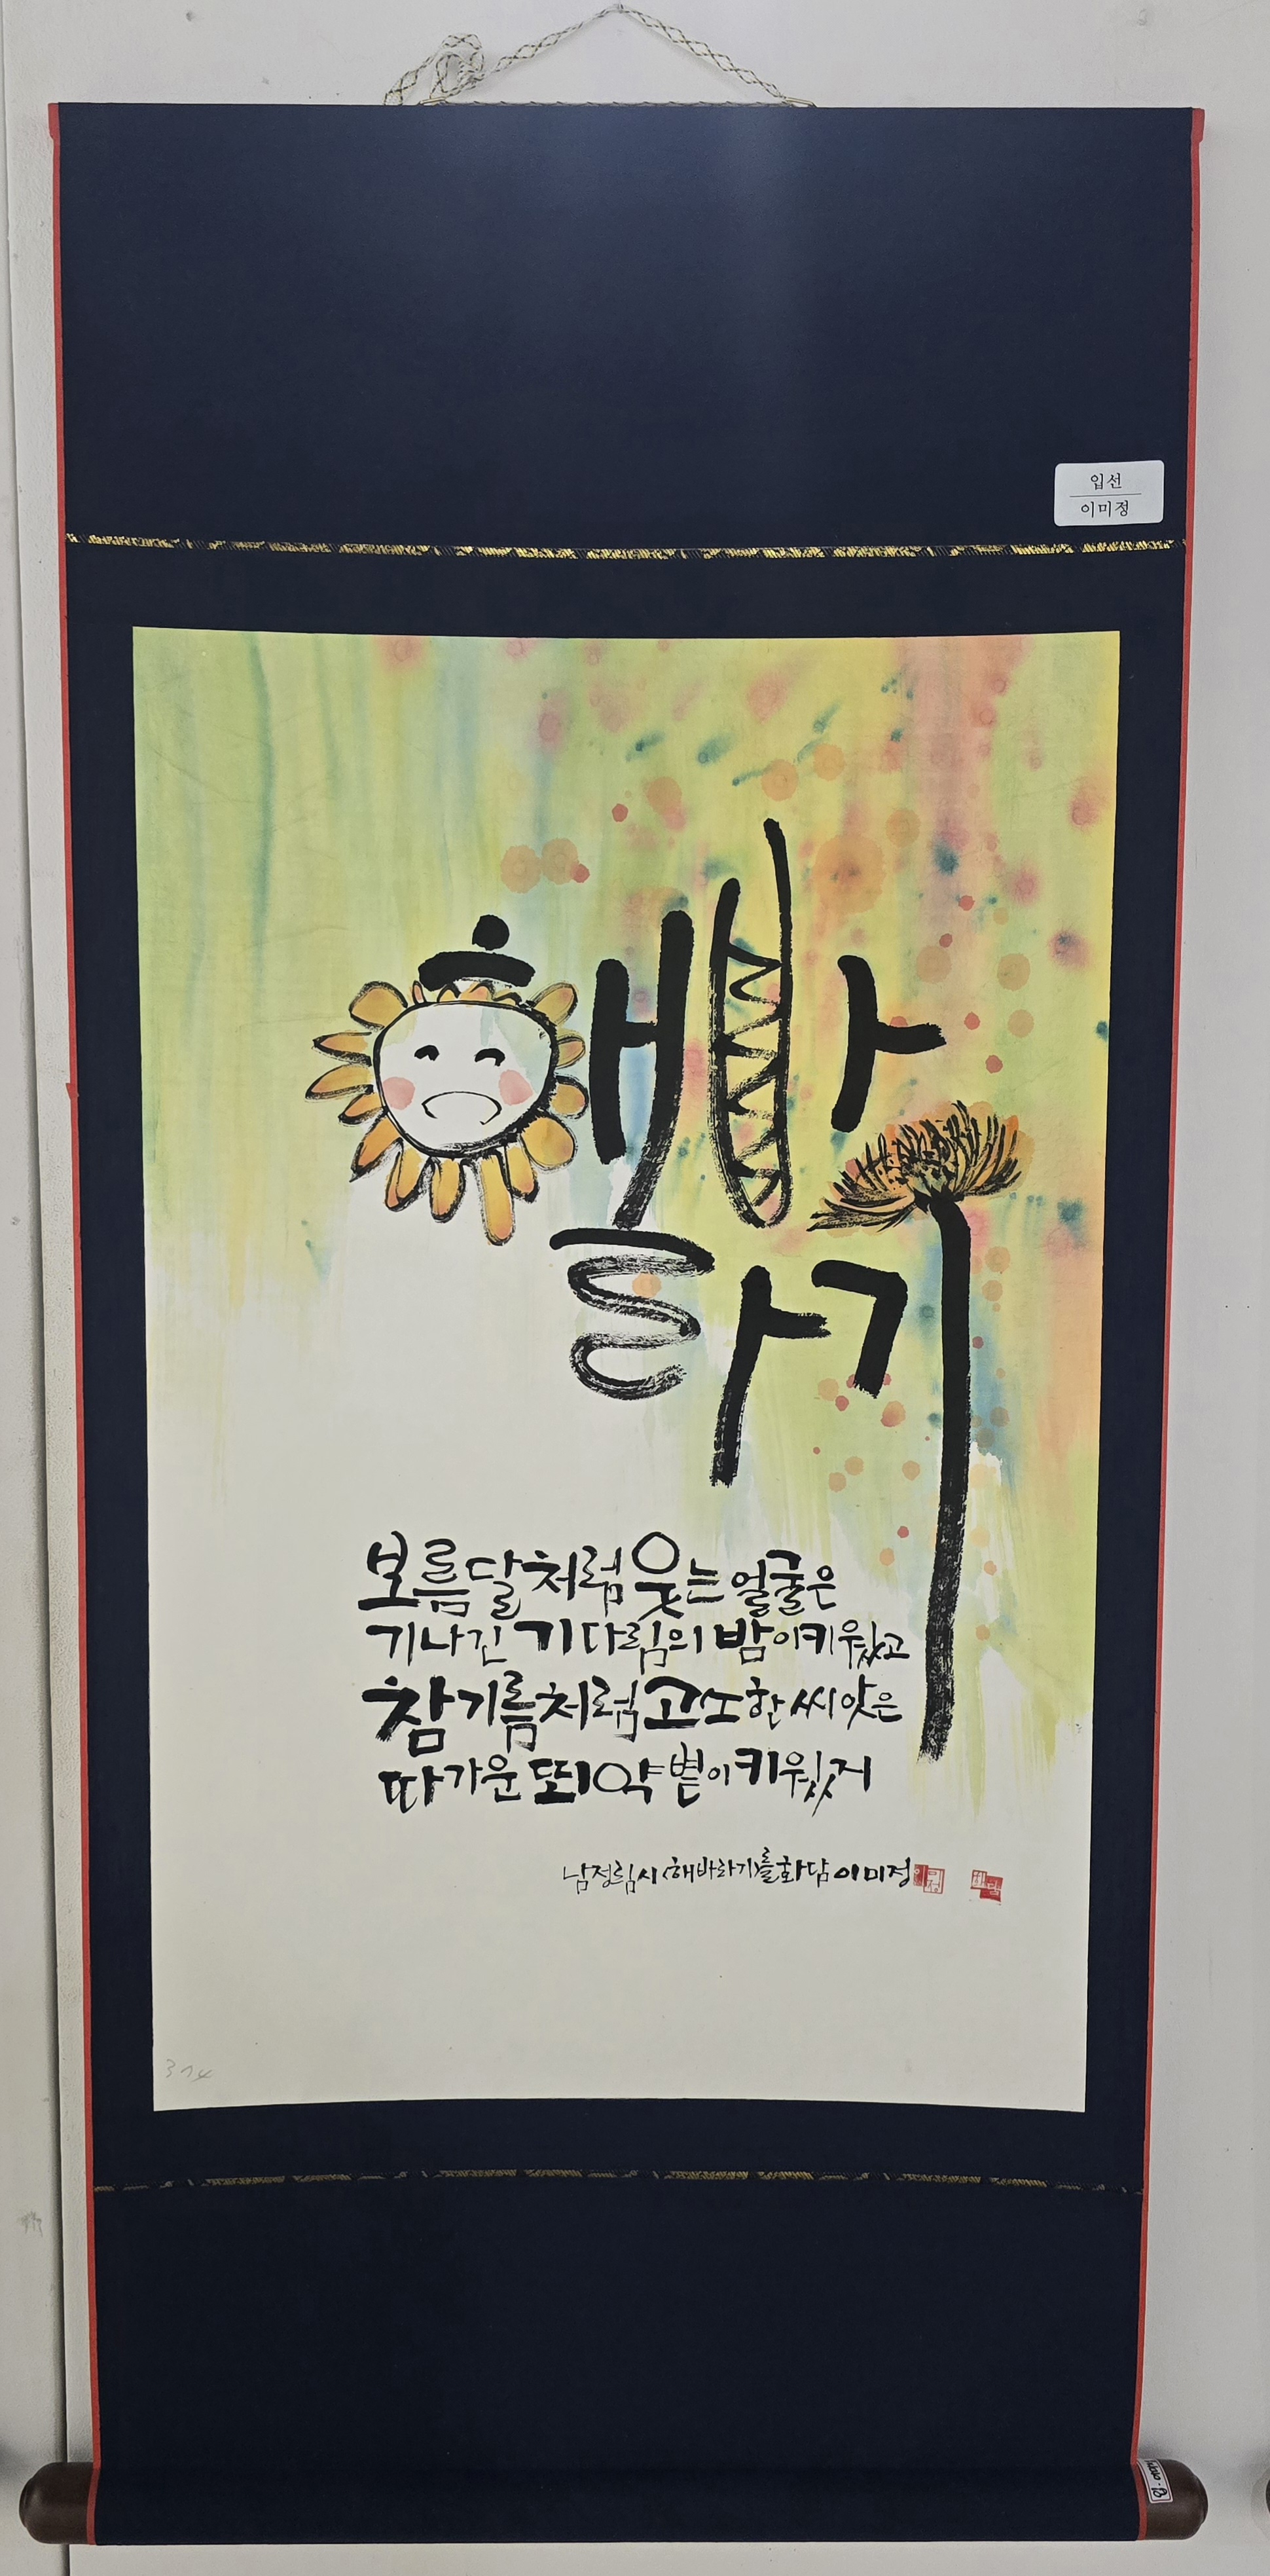 입선
이미정
해바
라기
보름달처럼 웃는 얼굴은
기나긴 기다림의 밤이 키웠고
참기름처럼 고소한 씨앗은
따가운 뙤약볕이 키웠지
남정림시 <해바라기>를 화담 이미정
374